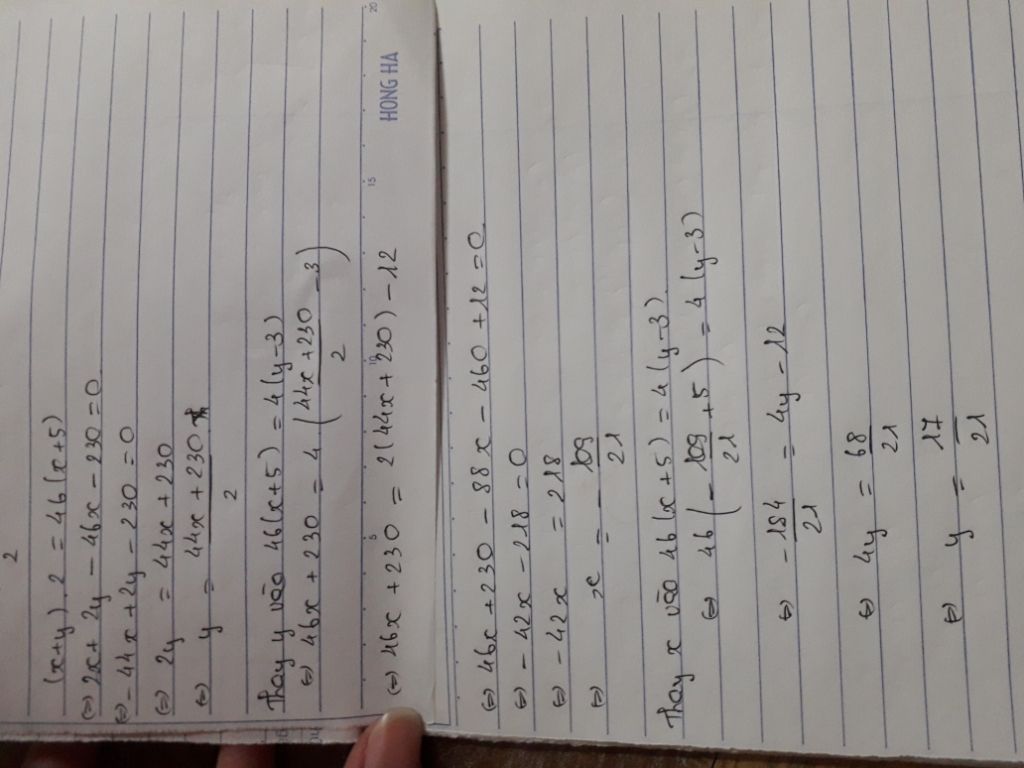 2
(x+y).2 = 46(x+5)
(=) 2x + 2y - 46x - 230 = 0
(=) - 44x + 2y - 230 = 0
(=) 2y = 44x + 230
(=) y = (44x + 230)/2
Thay y vào 46(x+5) = 4(y-3)
(=) 46x + 230 = 4 ((44x + 230)/2 - 3)
(=) 46x + 230 = 2(44x + 230) - 12
5 10 15 20
HONG HA
(=) 46x + 230 - 88x - 460 + 12 = 0
(=) - 42x - 218 = 0
(=) - 42x = 218
(=) x = - 109/21
Thay x vào 46(x+5) = 4(y-3)
(=) 46(- 109/21 + 5) = 4(y-3)
(=) - 184/21 = 4y - 12
(=) 4y = 68/21
(=) y = 17/21